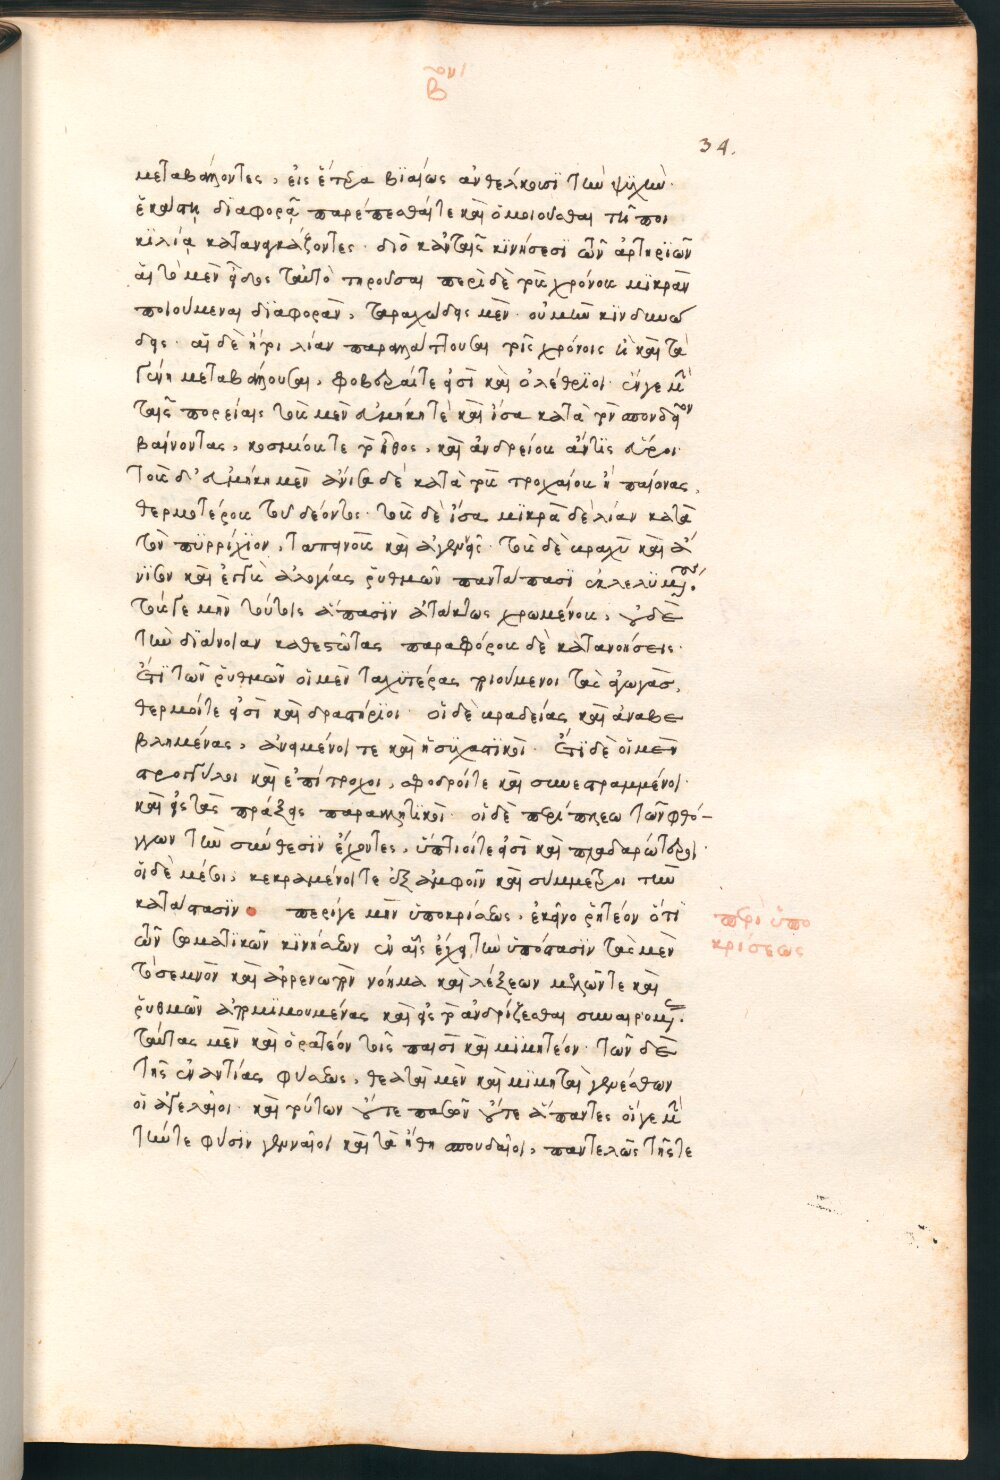 βον
34.
μεταβάλλοντες, εἰς ἕτερα βιαίως ἀνθέλκουσι τὴν ψυχὴν·
ἑκάστῃ διαφορᾷ παρέπεσθαί τε καὶ ὁμοιοῦσθαι τῇ ποι
κιλίᾳ καταναγκάζοντες· διὸ κἀν ταῖς κινήσεσι τῶν ἀρτηριῶν
αἱ τὸ μὲν εἶδος ταὐτὸ τηροῦσαι περὶ δὲ τοὺς χρόνους μικρὰν
ποιούμεναι διαφορὰν, ταραχώδεις μὲν· οὐ μὴν κινδυνώ
δεις· αἱ δὲ ἤτοι λίαν παραλλάττουσαι τοῖς χρόνοις ἢ καὶ τὰ
γένη μεταβάλλουσαι, φοβεραί τέ εἰσι καὶ ὀλέθριοι· ἔν γε μὴν
ταῖς πορείαις τοὺς μὲν εὐμήκη τὲ καὶ ἴσα κατὰ τὸν σπονδεῖον
βαίνοντας, κοσμίους τε τὸ ἦθος, καὶ ἀνδρείους ἄν τις εὕροι·
τοὺς δ' εὐμήκη μὲν ἄνισα δὲ κατὰ τοὺς τροχαίους ἢ παίονας,
θερμοτέρους τοῦ δέοντος· τοὺς δὲ ἴσα μικρὰ δὲ λίαν κατὰ
τὸν πυρρίχιον, ταπεινοὺς καὶ ἀγεννεῖς· τοὺς δὲ βραχὺ καὶ ἄ
νισον καὶ ἐγγὺς ἀλογίας ῥυθμῶν παντάπασιν ἐκλελυμένους·
τούς γε μὴν τούτοις ἅπασιν ἀτάκτως χρωμένους, οὐδὲ
τὴν διάνοιαν καθεστῶτας παραφόρους δὲ κατανοήσεις·
Ἔτι τῶν ῥυθμῶν οἱ μὲν ταχυτέρας ποιούμενοι τὰς ἀγωγὰς,
θερμοί τέ εἰσι καὶ δραστήριοι· οἱ δὲ βραδείας καὶ ἀναβε
βλημένας, ἀνειμένοι τε καὶ ἡσυχαστικοὶ· Ἔτι δὲ οἱ μὲν
στρογγύλοι καὶ ἐπίτροχοι, σφοδροί τε καὶ συνεστραμμένοι·
καὶ εἰς τὰς πράξεις παρακλητικοὶ· οἱ δὲ περίπλεω τῶν φθό-
γγων τὴν σύνθεσιν ἔχοντες, ὕπτιοί τέ εἰσι καὶ πλαδαρώτεροι·
οἱ δὲ μέσοι, κεκραμένοι τε ἐξ ἀμφοῖν καὶ σύμμετροι τὴν
κατάστασιν περί γε μὴν ὑποκρίσεως, ἐκεῖνο ῥητέον ὅτι
τῶν σωματικῶν κινήσεων ἐν αἷς ἔχει τὴν ὑπόστασιν τὰς μὲν
τὸ σεμνὸν καὶ ἀρρενωπὸν νόημα καὶ λέξεων μελῶν τε καὶ
ῥυθμῶν ἀπομιμουμένας καὶ εἰς τὸ ἀνδρίζεσθαι συναιρομένας·
ταύτας μὲν καὶ ὁρατέον τοῖς πᾶσι καὶ μιμητέον· τῶν δὲ
τῆς ἐναντίας φύσεως, θεαταὶ μὲν καὶ μιμηταὶ γενέσθων
οἱ ἀγελαῖοι· καὶ τούτων οὔτε πασῶν οὔτε ἅπαντες οἵ γε μὴν
τήν τε φύσιν γενναῖοι καὶ τὰ ἤθη σπουδαῖοι, παντελῶς τῆς τε
περὶ ὑπο
κρίσεως